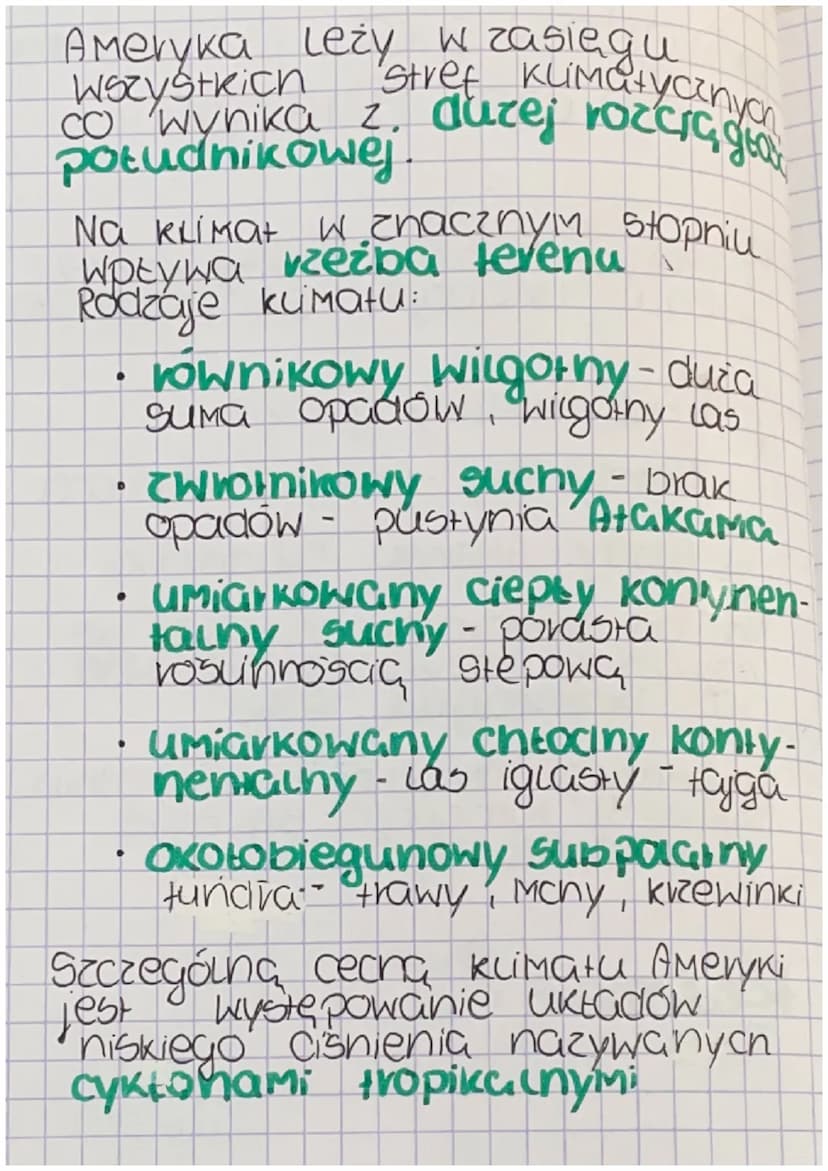 Ameryka leży w zasięgu
wszystkich stref klimatycznych
co wynika z dużej rozciągłoś
południkowej.
Na klimat w znacznym stopniu
wpływa rzeźba terenu
Rodzaje klimatu:
• równikowy wilgotny - duża
suma opadów, wilgotny las
• zwrotnikowy suchy - brak
opadów - pustynia Atakama
• umiarkowany ciepły kontynen-
talny suchy - porasta
roślinnością stepową
• umiarkowany chłodny konty-
nentalny - las iglasty - tajga
• okołobiegunowy subpolarny
tundra - trawy, mchy, krzewinki
Szczególną cechą klimatu Ameryki
jest występowanie układów
niskiego ciśnienia nazywanych
cyklonami tropikalnymi